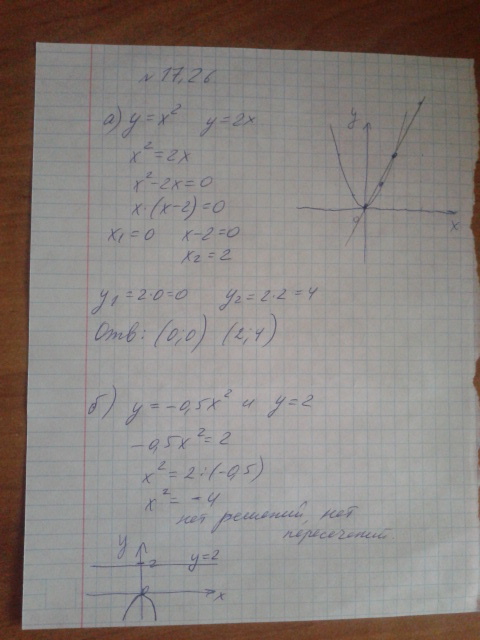 № 17,26.
а) y = x² y = 2x
x² = 2x
x² - 2x = 0
x·(x-2) = 0
x₁ = 0 x-2 = 0
x₂ = 2
y
0
x
y₁ = 2·0 = 0 y₂ = 2·2 = 4
Отв: (0;0) (2;4)
б) y = -0,5x² и y = 2
-0,5x² = 2
x² = 2:(-0,5)
x² = -4
нет решений, нет
пересечений
y
2 y=2
0
x